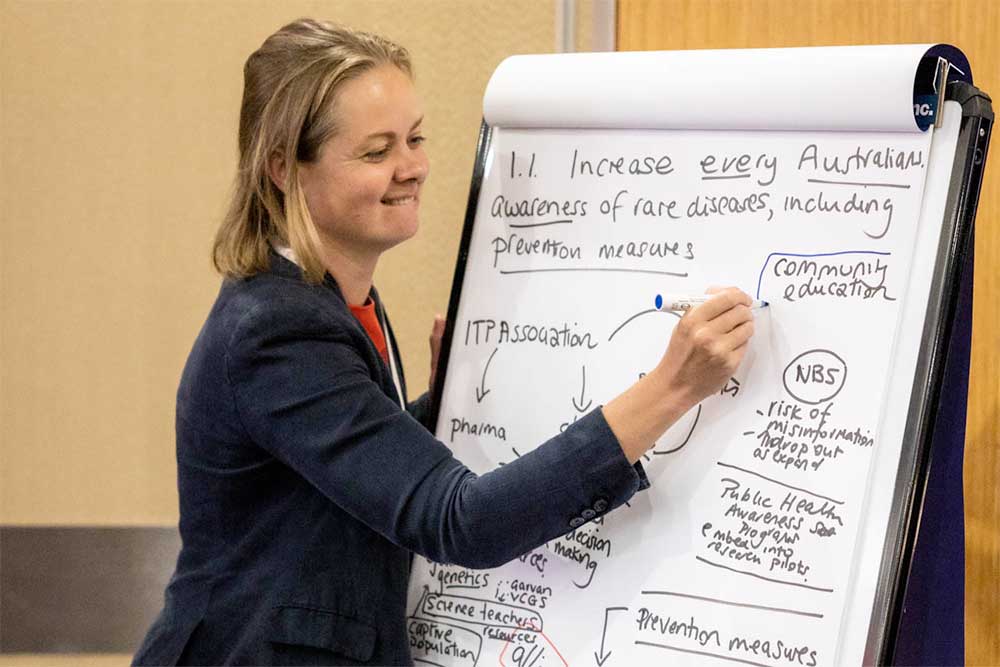 nc.
1.1. Increase every Australians
awareness of rare diseases, including
prevention measures
community
education
ITP Association
pharma
NBS
- risk of
misinformation
- drop out
as expand
Public Health
Awareness
Programs
embed into
research pilots.
decision
making
genetics
garvan
VCGS
science teachers
resources
captive
population
Prevention measures